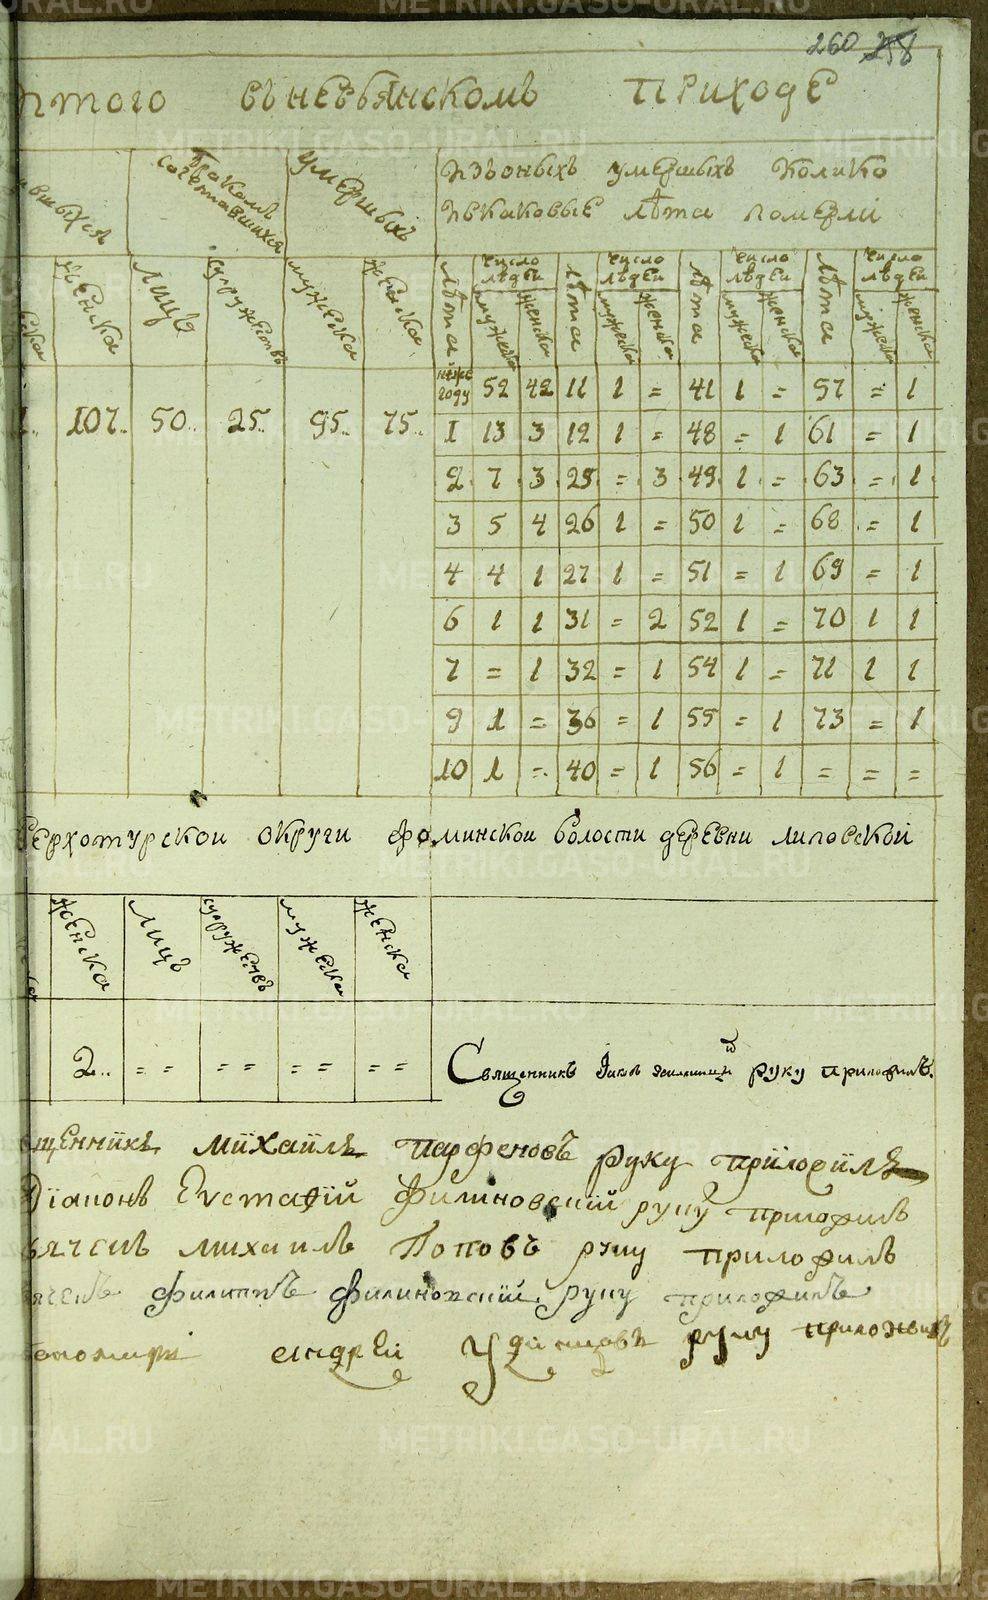 260 258
вневьянскомъ приходѣ
бракомъ сочетавшихся
умершыхъ
изъоныхъ умершыхъ колико
ивкаковые лѣта померли
женска лицъ супружествъ мужеска женска
лѣта число людей мужеска женска лѣта число людей мужеска женска лѣта число людей мужеска женска лѣта число людей мужеска женска
ниже году 52 42 11 1 = 41 1 = 57 = 1
107.. 50.. 25.. 95.. 75..
1 13 3 12 1 = 48 = 1 61 = 1
2 7 3 25 = 3 49 1 = 63 = 1
3 5 4 26 1 = 50 1 = 68 = 1
4 4 1 27 1 = 51 = 1 69 = 1
6 1 1 31 = 2 52 1 = 70 1 1
7 = 1 32 = 1 54 1 = 71 1 1
9 1 = 36 = 1 55 = 1 73 = 1
10 1 = 40 = 1 56 = 1 = = =
верхотурской округи фоминской волости деревни липовской
женска лицъ супружествъ мужеска женска
2.. = = = = = = = =
Священникъ руку приложилъ.
михаилъ парфеновъ руку приложилъ
Діаконъ Евстафій Филиновскій руку приложилъ
михаилъ Поповъ руку приложилъ
филиппъ Филиновскій руку приложилъ
андрей Удинцовъ руку приложилъ
METRIKI.GASO-URAL.RU